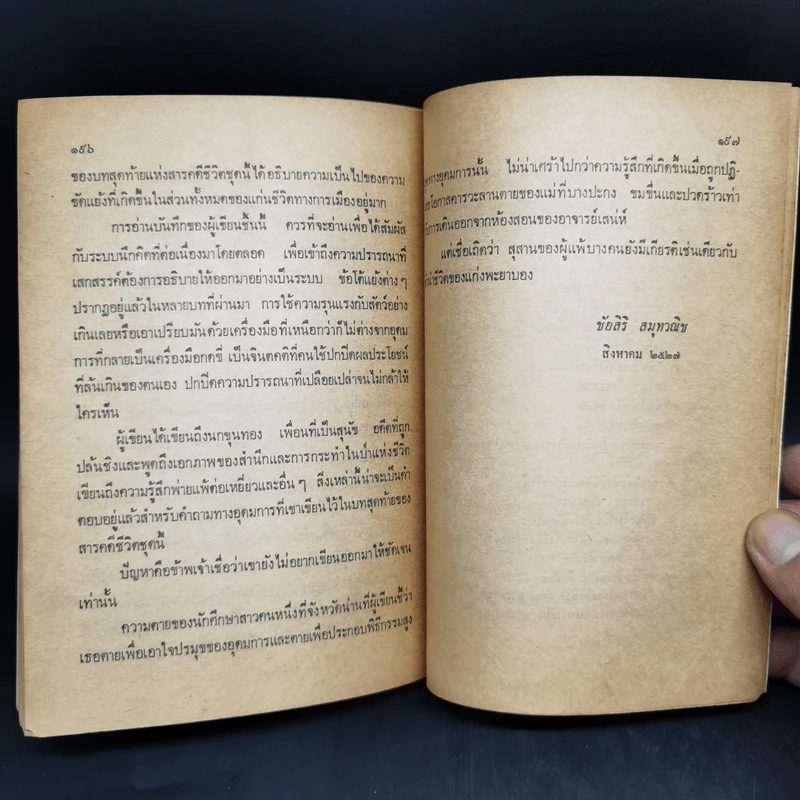 ๑๙๖
ของบทสุดท้ายแห่งสารคดีชีวิตชุดนี้ ได้อธิบายความเป็นไปของความ
ขัดแย้งที่เกิดขึ้นในส่วนทั้งหมดของแก่นชีวิตทางการเมืองอยู่มาก
การอ่านบันทึกของผู้เขียนชิ้นนี้ ควรที่จะอ่านเพื่อได้สัมผัส
กับระบบนึกคิดที่ต่อเนื่องมาโดยตลอด เพื่อเข้าถึงความปรารถนาที่
เสกสรรค์ต้องการอธิบายให้ออกมาอย่างเป็นระบบ ข้อโต้แย้งต่างๆ
ปรากฏอยู่แล้วในหลายบทที่ผ่านมา การใช้ความรุนแรงกับสัตว์อย่าง
เกินเลยหรือเอาเปรียบมันด้วยเครื่องมือที่เหนือกว่าก็ไม่ต่างจากอุดม
การที่กลายเป็นเครื่องมือกดขี่ เป็นจินตคติที่คนใช้ปกปิดผลประโยชน์
ที่ล้นเกินของตนเอง ปกปิดความปรารถนาที่เปลือยเปล่าจนไม่กล้าให้
ใครเห็น
ผู้เขียนได้เขียนถึงนกขุนทอง เพื่อนที่เป็นสุนัข อดีตที่ถูก
ปล้นชิงและพูดถึงเอกภาพของสำนึกและการกระทำในป่าแห่งชีวิต
เขียนถึงความรู้สึกพ่ายแพ้ต่อเหยี่ยวและอื่นๆ สิ่งเหล่านี้น่าจะเป็นคำ
ตอบอยู่แล้วสำหรับคำถามทางอุดมการที่เขาเขียนไว้ในบทสุดท้ายของ
สารคดีชีวิตชุดนี้
ปัญหาคือข้าพเจ้าเชื่อว่าเขายังไม่อยากเขียนออกมาให้ชัดเจน
เท่านั้น
ความตายของนักศึกษาสาวคนหนึ่งที่จังหวัดน่านที่ผู้เขียนชี้ว่า
เธอตายเพื่อเอาใจปรมุขของอุดมการและตายเพื่อประกอบพิธีกรรมสูง
๑๙๗
ทางอุดมการนั้น ไม่น่าเศร้าไปกว่าความรู้สึกที่เกิดขึ้นเมื่อถูกปฏิ-
โอกาสคารวะลานตายของแม่ที่บางปะกง ขมขื่นและปวดร้าวเท่า
การเดินออกจากห้องสอนของอาจารย์เสน่ห์
แต่เชื่อเถิดว่า สุสานของผู้แพ้บางคนยังมีเกียรติเช่นเดียวกับ
ชีวิตของแก่งพะยาบอง
ชัยสิริ สมุทวณิช
สิงหาคม ๒๕๒๗